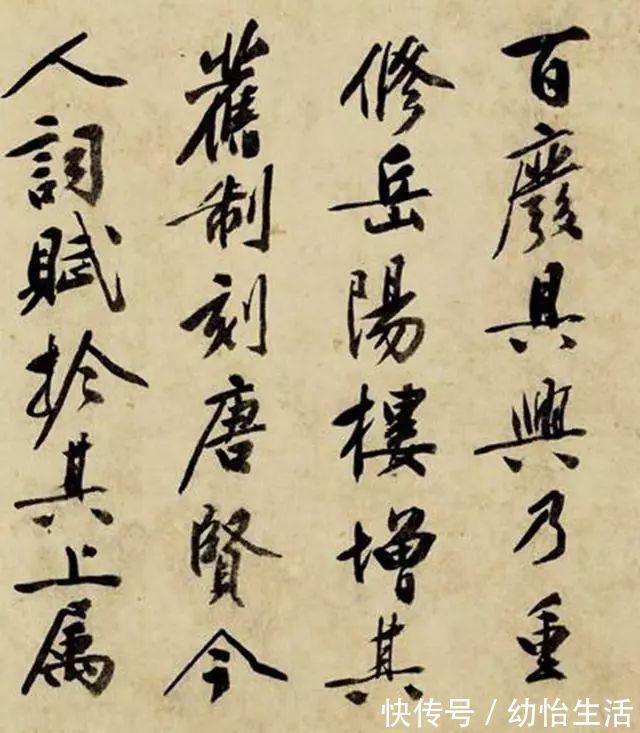 百廢具興乃重
修岳陽樓增其
舊制刻唐賢今
人詞賦於其上屬
快传号/幼怡生活